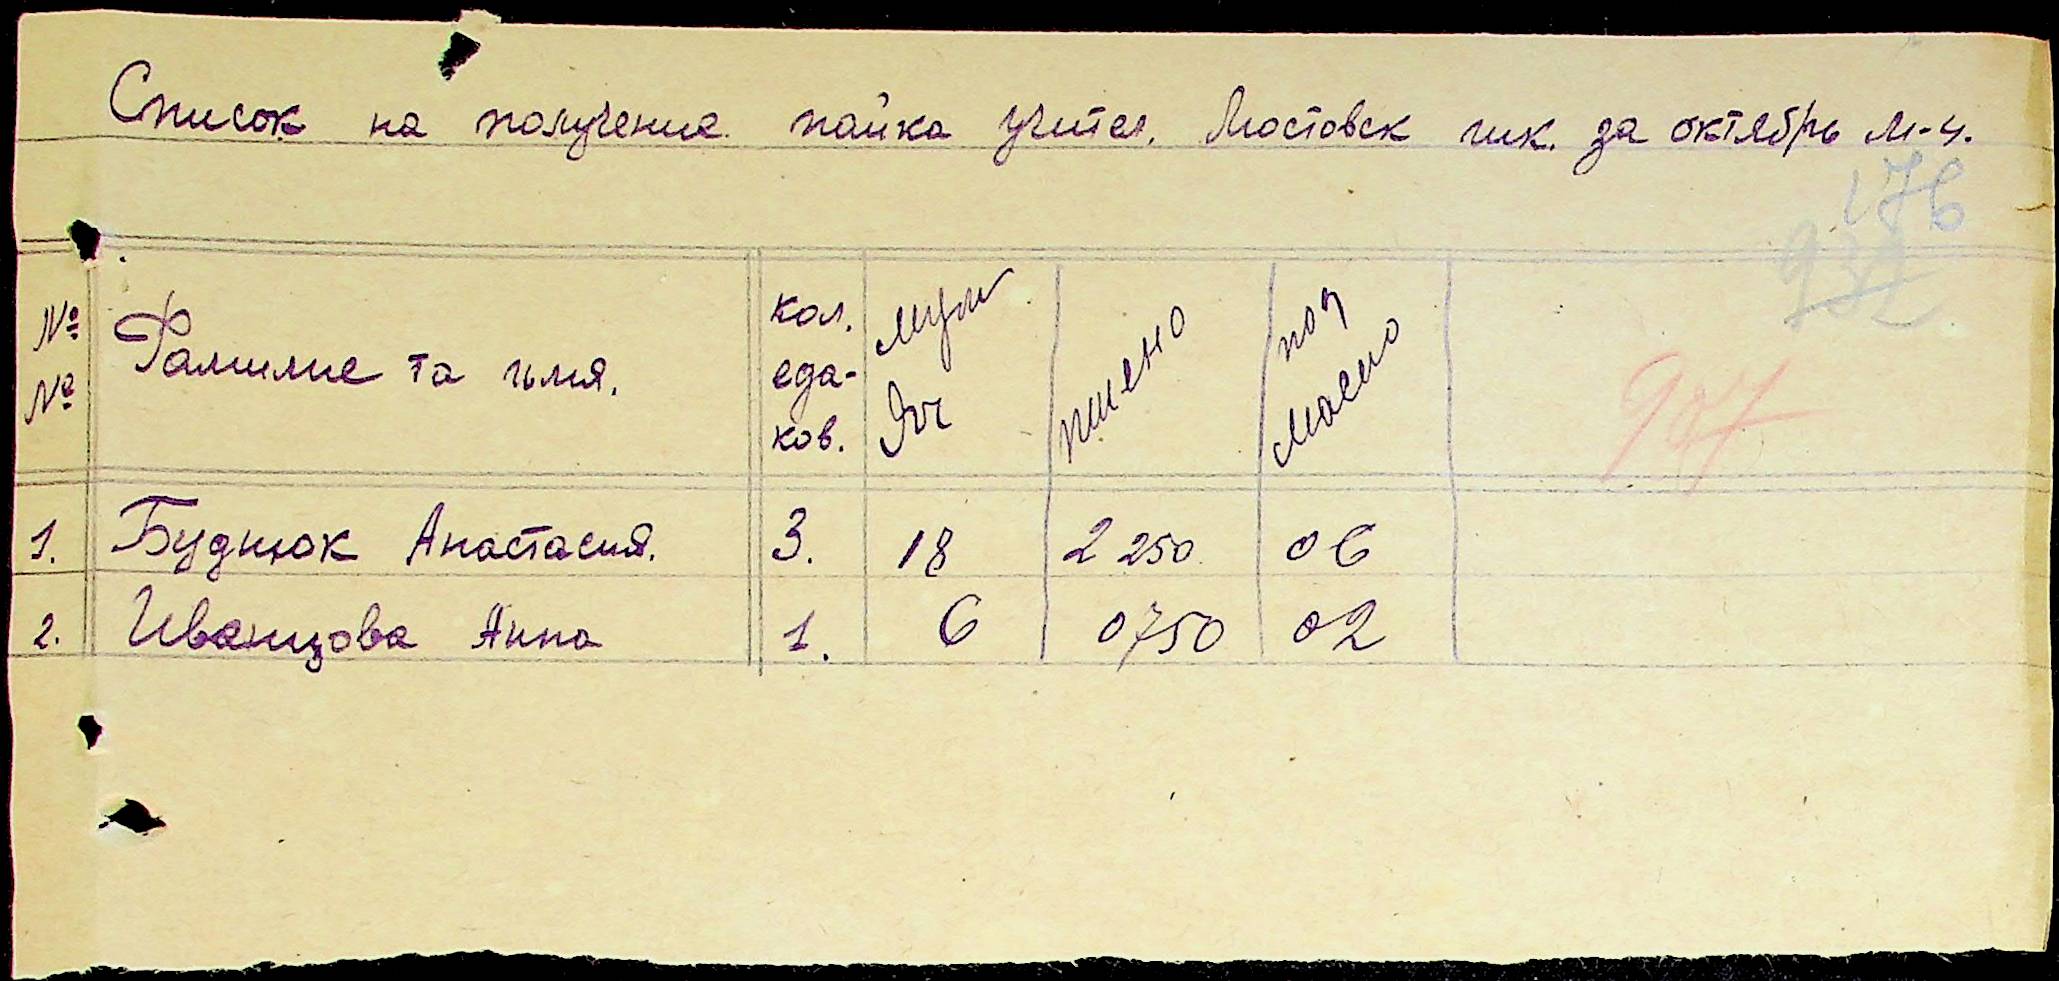 Список на получение пайка учител. Мостовск шк. за октябрь м-ц.
176
932
№ №
Фамилие та имя.
кол. еда- ков.
мук Яч
пшено
под масло
907
1. Буднюк Анастасия. 3. 18 2 250 06
2. Иванцова Анна 1. 6 0750 02